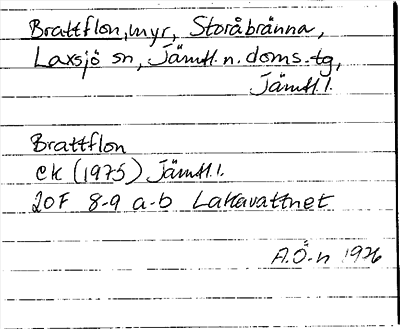 Brattflon, myr, Storåbränna,
Laxsjö sn, Jämtl. n. doms.-tg,
Jämtl. l.
Brattflon
ek (1975) Jämtl. l.
20F 8-9 a-b Lakavattnet
A.Ö-n 1976